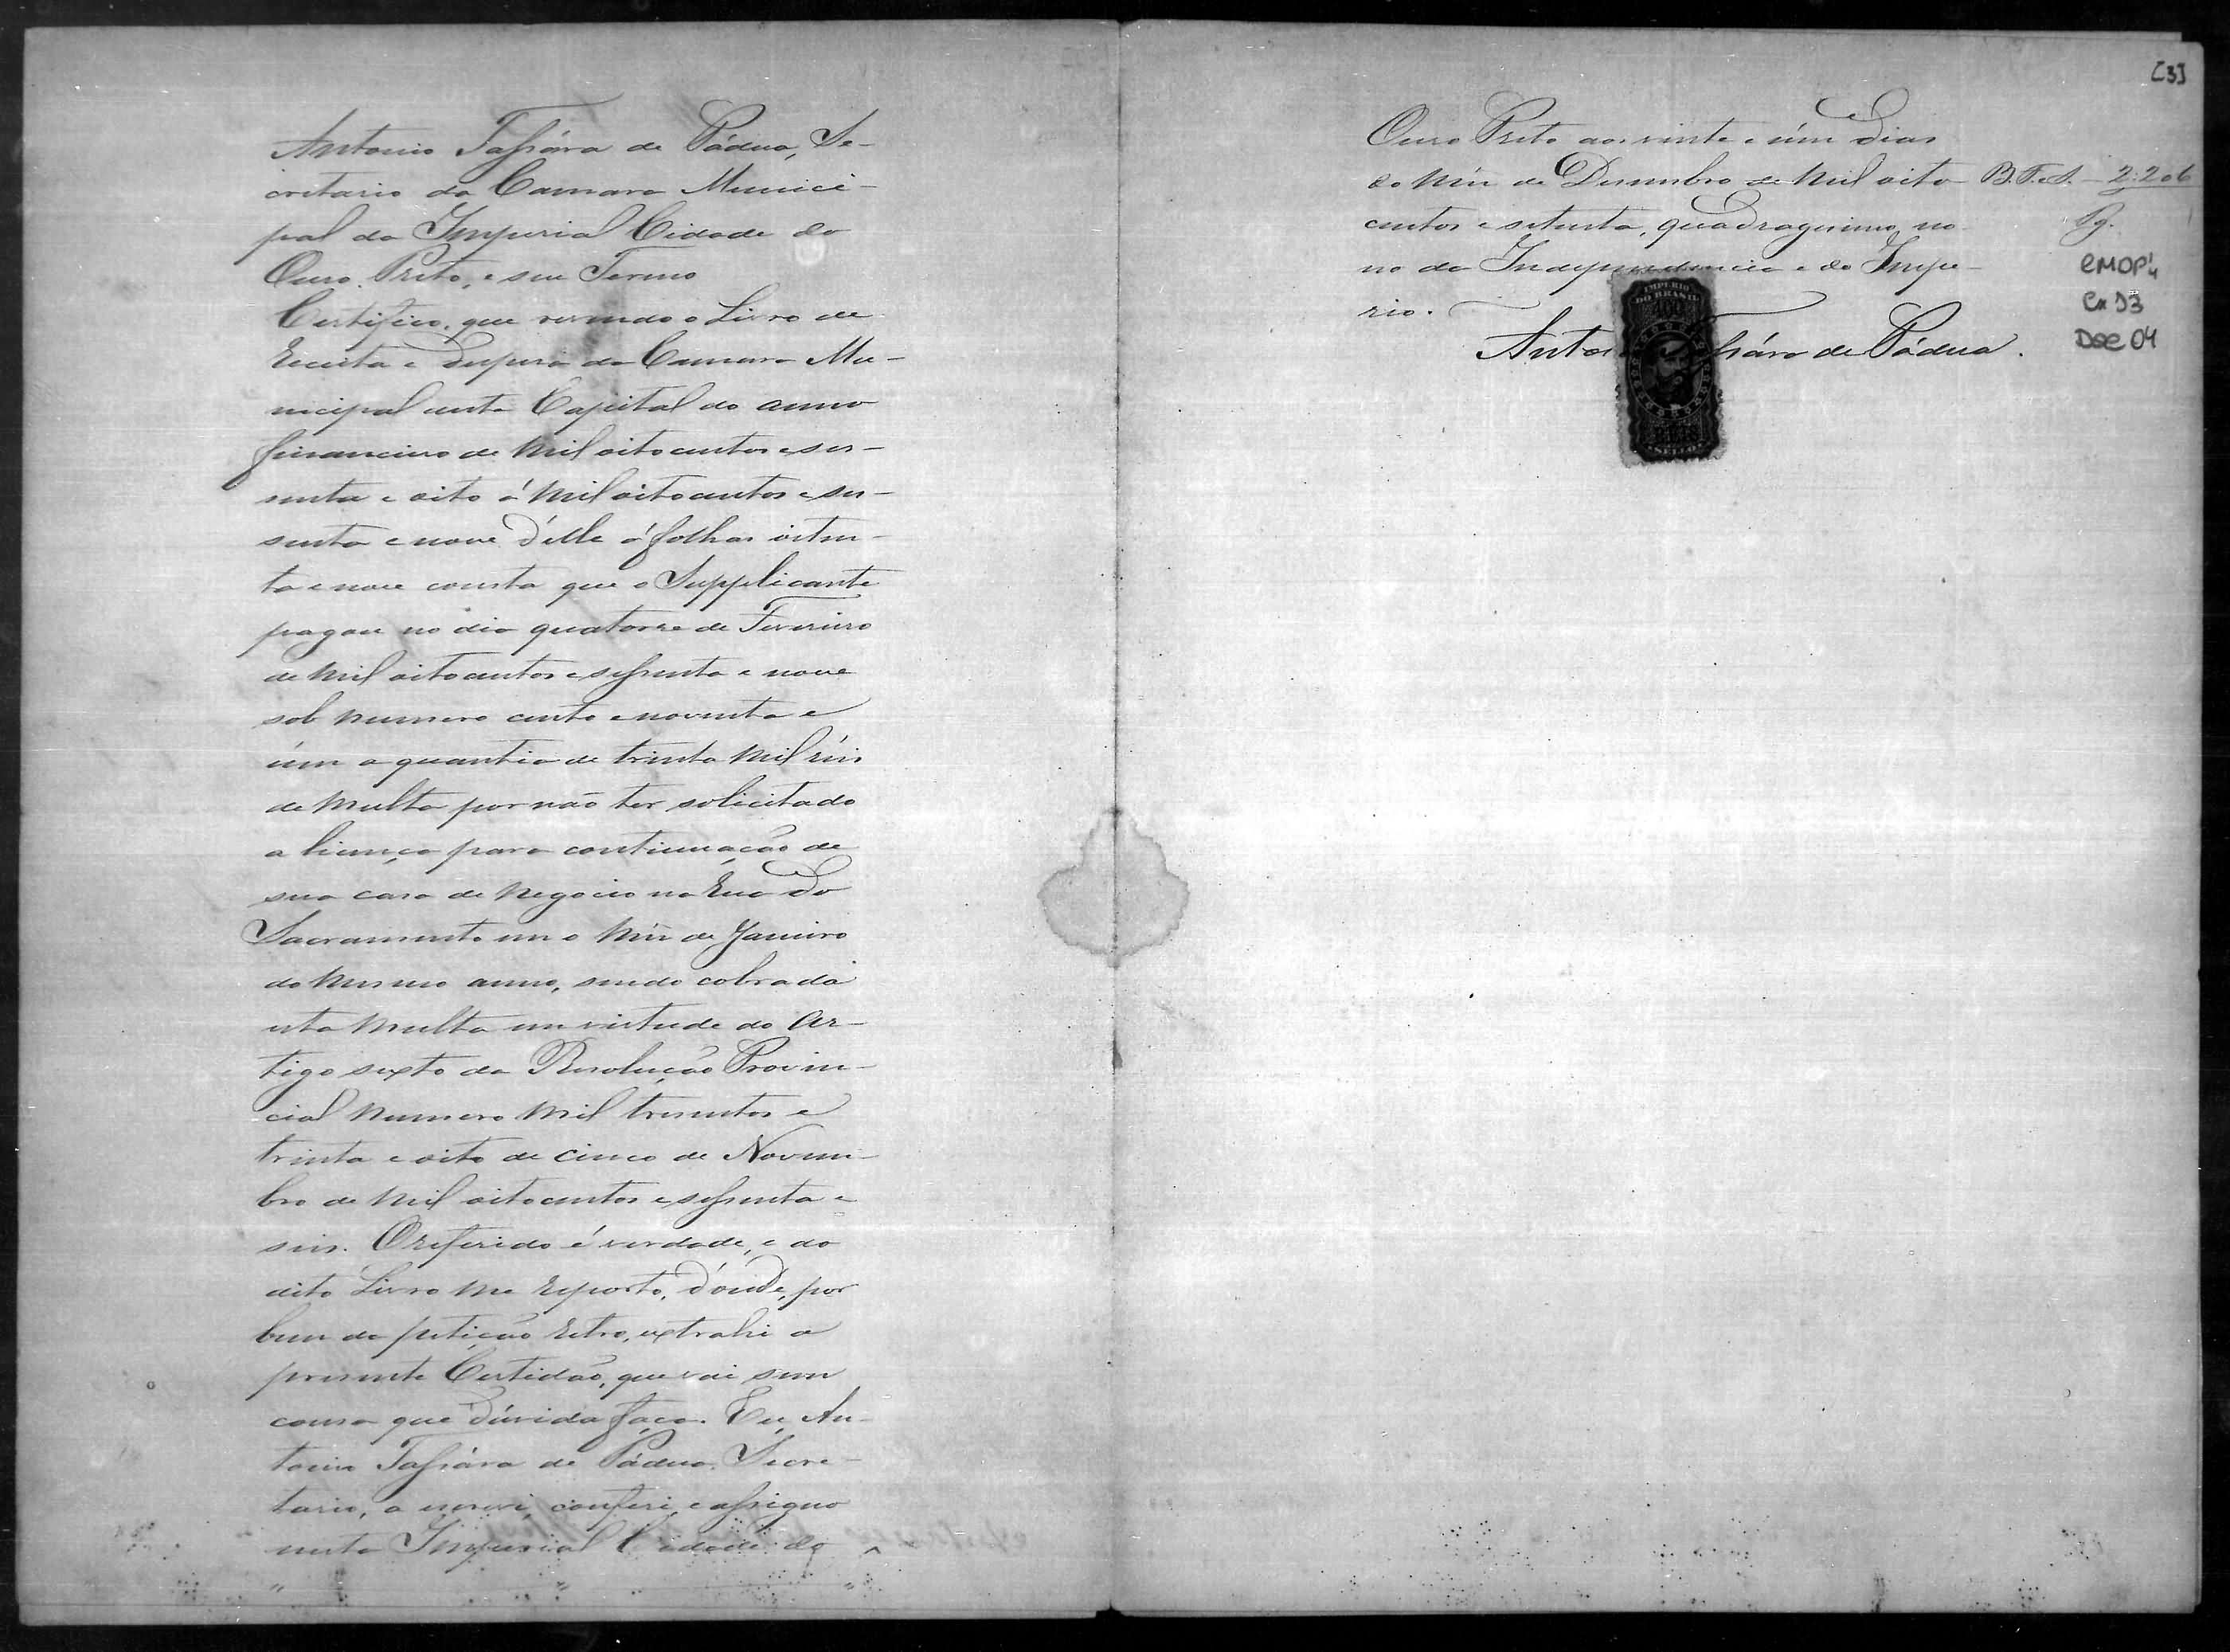 Antonio Tassára de Pádua, Se-
cretario da Camara Munici-
pal da Imperial Cidade do
Ouro Preto, e seu Termo
Certifico, que revendo o Livro de
Receita e Despesa da Camara Mu-
nicipal desta Capital do anno
financeiro de mil oitocentos e ses-
senta e oito á mil oitocentos e ses-
senta e nove d'elle á folhas oiten-
ta e nove consta que o Supplicante
pagou no dia quatorze de Fevereiro
de mil oitocentos e sessenta e nove
sob numero cento e noventa e
úm a quantia de trinta mil réis
de multa por não ter solicitado
a licença para continuação de
sua casa de negocio na Rua do
Sacramento em o mez de Janeiro
do mesmo anno, sendo cobrada
esta multa em virtude do Ar-
tigo sexto da Resolução Provin-
cial numero mil tresentos e
trinta e oito de cinco de Novem-
bro de mil oitocentos e sessenta e
seis. O referido é verdade, e ao
dito Livro me reporto, d'onde, por
bem da petição retro, extrahi a
presente Certidão, que vai sem
cousa que dúvida faça. Eu, An-
tonio Tassára de Pádua, Secre-
tario, a escrevi, conferi, e assigno
nesta Imperial Cidade do
[3]
Ouro Preto aos vinte e úm dias
do mez de Desembro de mil oito
centos e setenta, quadragesimo no-
no da Independencia e do Impe-
rio.
Antonio Tassára de Pádua.
B. F. S. - 2:206
Pg.
CMOP¹4
Cx 93
Doc 04
IMPERIO
DO BRASIL
SELLO